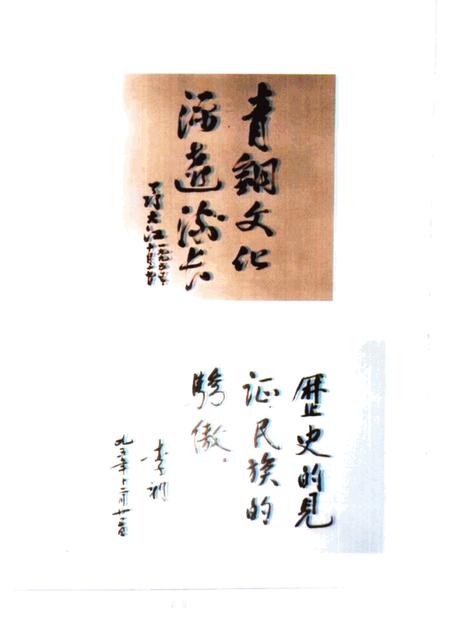 青銅文化
源遠流长
歷史的見
证民族的
驕傲。
李
九五年十二月